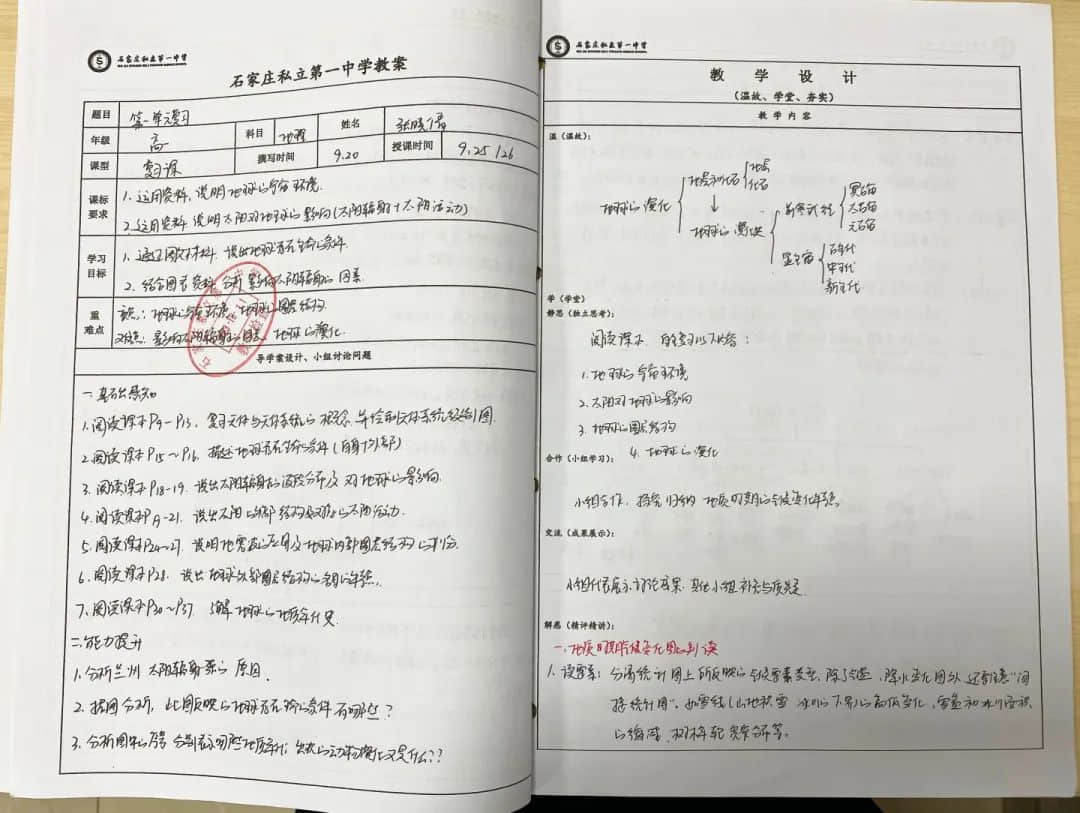 石家庄私立第一中学
石家庄私立第一中学教案
题目 第一单元复习
年级 高一 科目 地理 姓名 张晓倩
课型 复习课 撰写时间 9.20 授课时间 9.25/26
课标要求
1. 运用资料，说明地球的宇宙环境.
2. 运用资料 说明太阳对地球的影响(太阳辐射+太阳活动)
学习目标
1. 通过图文材料 说出地球存在生命的条件.
2. 结合图表资料 分析影响太阳辐射的因素.
重难点
重点: 地球的宇宙环境、地球的圈层结构.
难点: 影响太阳辐射的因素、地球的演化.
导学案设计、小组讨论问题
一、基础感知
1. 阅读课本P9-P13、复习天体与天体系统的概念、并绘制天体系统级别图.
2. 阅读课本P15~P16. 描述地球存在生命的条件(自身+外部)
3. 阅读课本P18-19. 说出太阳辐射的 分布及对地球的影响.
4. 阅读课本P -21. 说出太阳的外部结构及对应的太阳活动.
5. 阅读课本P24~27. 说明地震波的应用及地球内部圈层结构的划分.
6. 阅读课本P28. 说出地球外部圈层结构的 特点.
7. 阅读课本P30~P37. 了解地球的地质年代史.
二、能力提升
1. 分析兰州太阳辐射 的原因.
2. 据图分析，此图反映的地球存在生命的条件有哪些？
3. 分析图中 分别表示哪些地质年代；出大的动物 又是什么？？
石家庄私立第一中学
教 学 设 计
(温故、学堂、夯实)
教 学 内 容
温（温故）：
地球的演化
地层和化石 地层 化石
↓
地球的演化
前寒武纪 冥古宙 太古宙 元古宙
显生宙 古生代 中生代 新生代
学（学堂）
静思（独立思考）：
阅读课本，自主复习以下内容：
1. 地球的宇宙环境
2. 太阳对地球的影响
3. 地球的圈层结构
4. 地球的演化
合作（小组学习）：
小组合作，探究归纳 地质时期的气候变化特点.
交流（成果展示）：
小组代表展示讨论成果，其他小组补充与质疑.
解惑（精评精讲）：
一、地质时期气候变化图的判读
1. 读要素： 分清统计图上所反映的气候要素类型，除气温、降水变化图外 还要注意“间
接统计图”，如雪线(山地积雪 冰川的下界)的高低变化、雪盖和冰川面积
的缩减、树木年轮宽窄等.